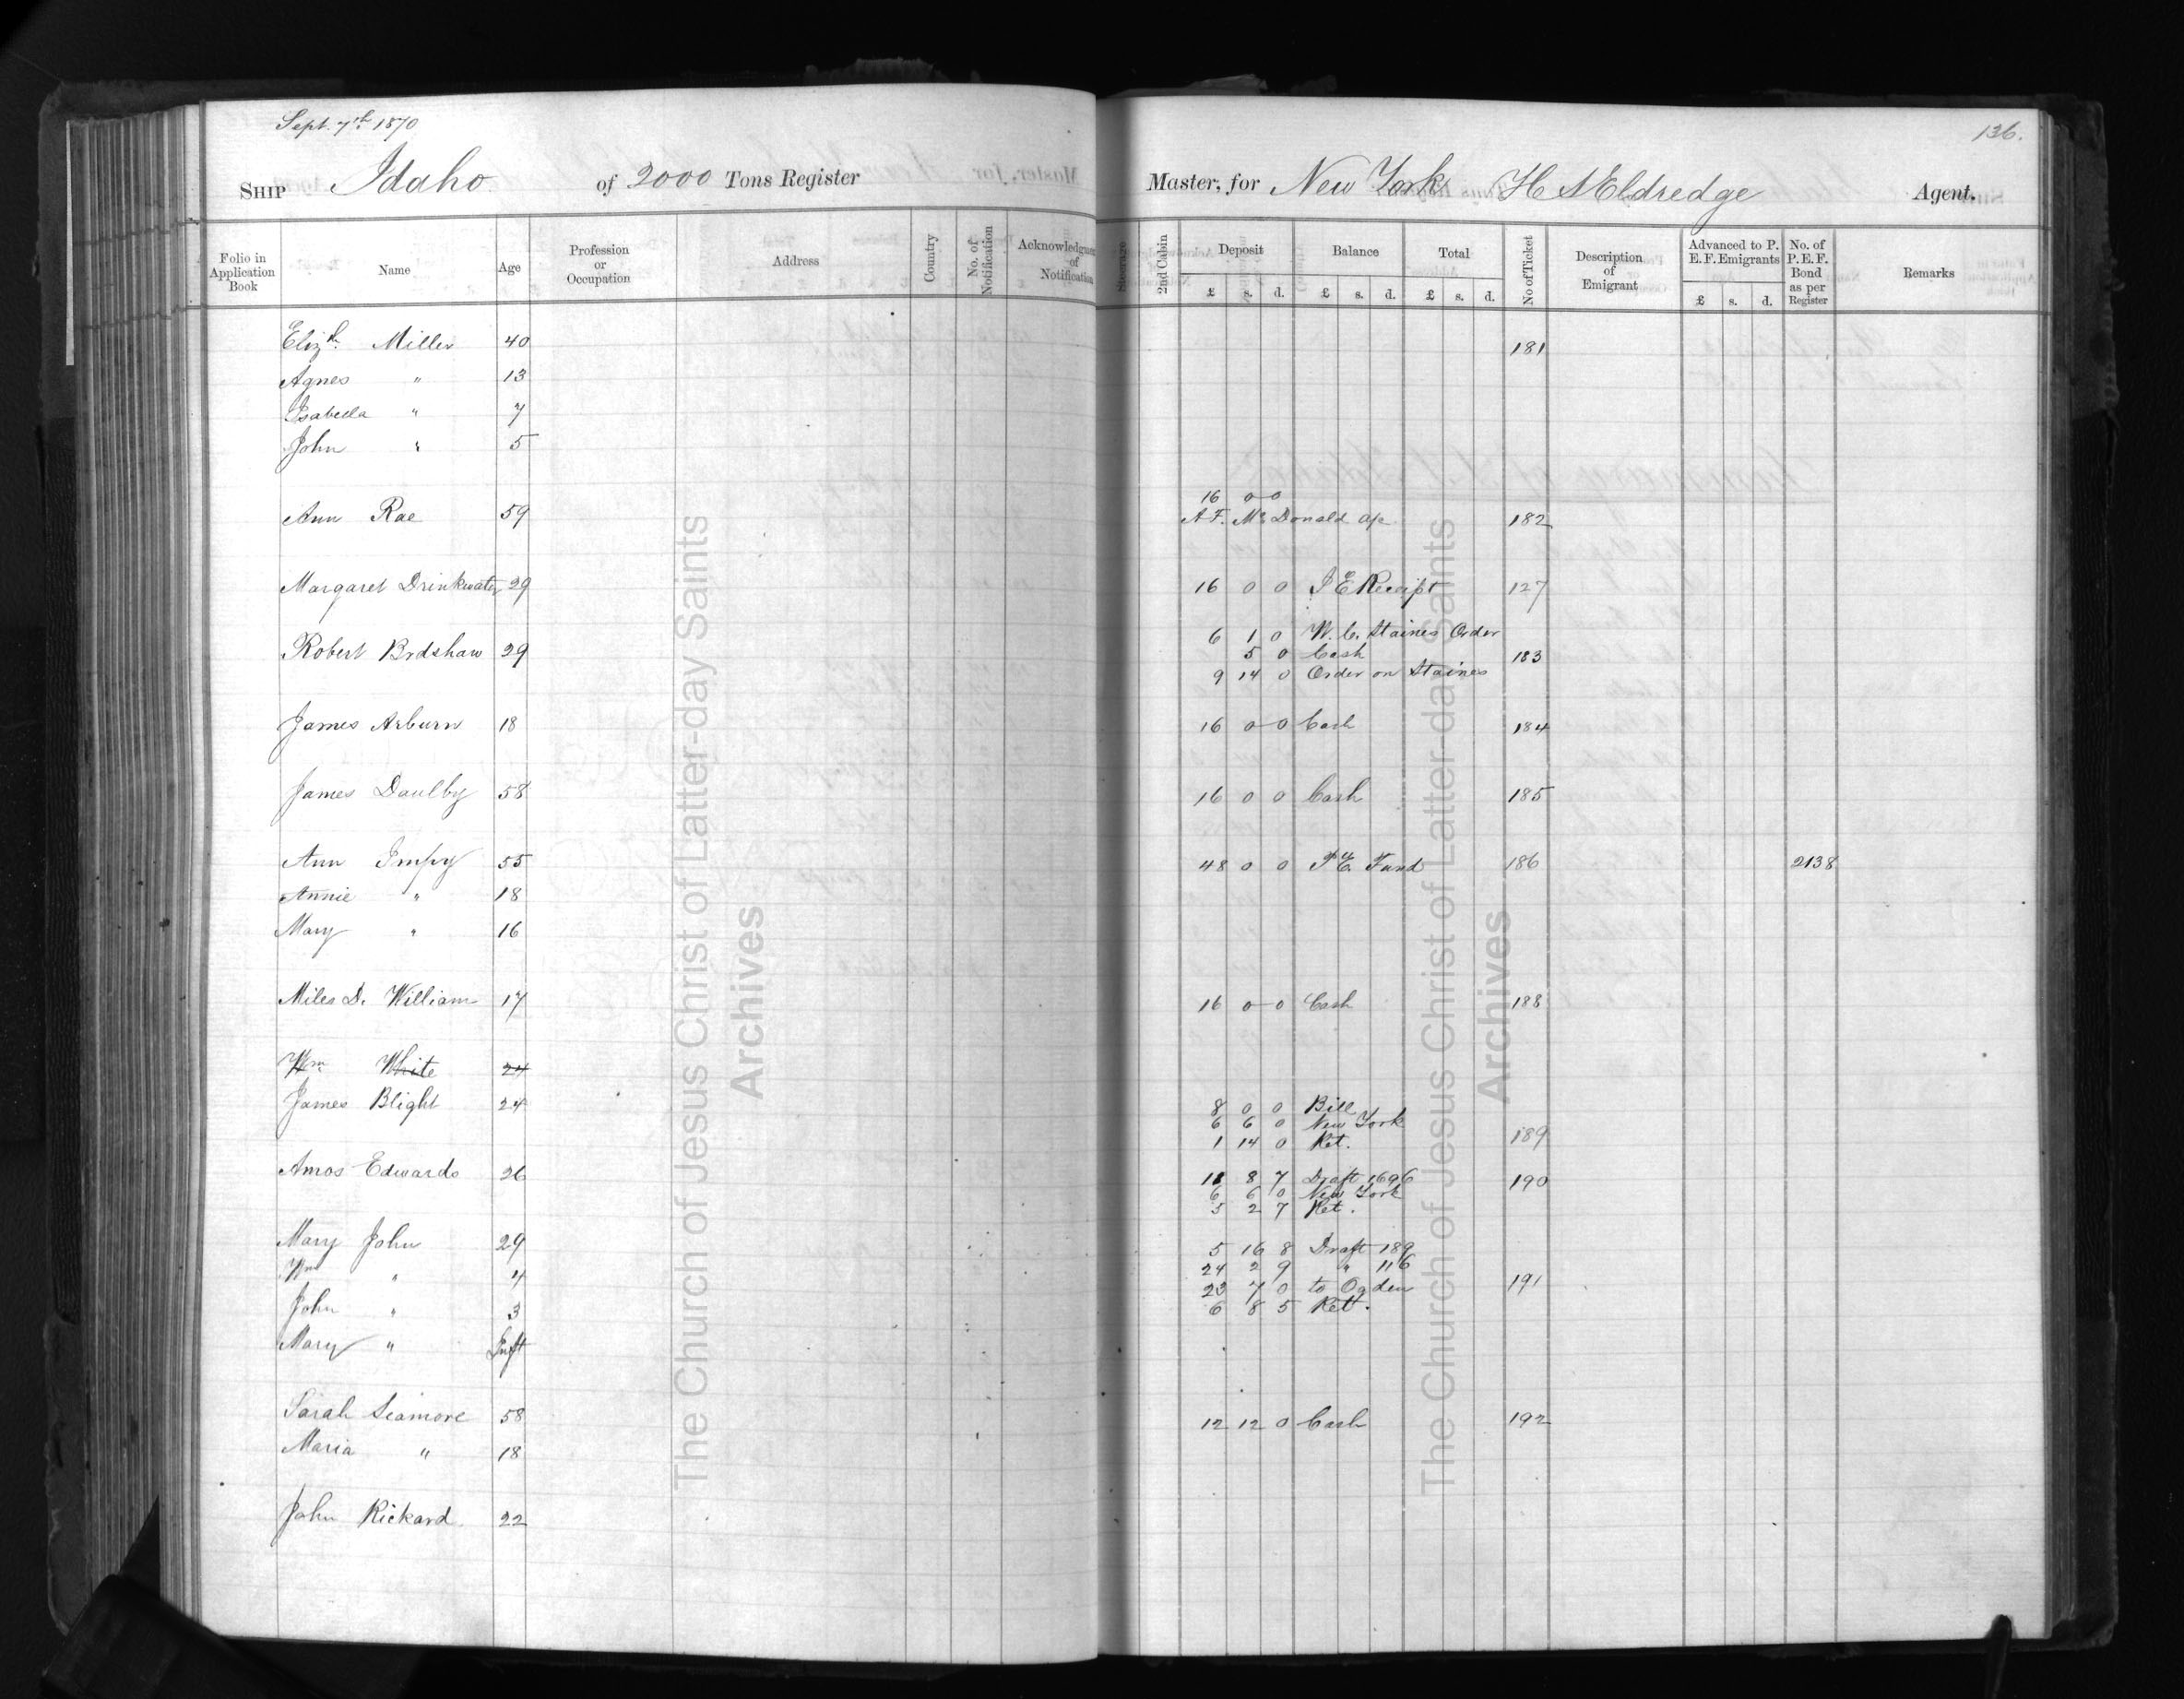 Sept. 7th 1870
136.
SHIP Idaho of 2000 Tons Register Master, for New York H S Eldredge Agent.
Folio in Application Book Name Age Profession or Occupation Address Country No. of Notification Acknowledgment of Notification Steerage 2nd Cabin Deposit Balance Total No of Ticket Description of Emigrant Advanced to P. E. F. Emigrants No. of P. E. F. Bond as per Register Remarks
£ s. d. £ s. d. £ s. d. £ s. d.
Elizth Miller 40 181
Agnes " 13
Isabella " 7
John " 5
16 0 0
Ann Rae 59 A F. Mc Donald a/c 182
Margaret Drinkwater 29 16 0 0 P E Receipt 127
6 1 0 W. C. Staines Order
Robert Brdshaw 29 5 0 Cash 183
9 14 0 Order on Staines
James Arburn 18 16 0 0 Cash 184
James Daulby 58 16 0 0 Cash 185
Ann Impy 55 48 0 0 P E. Fund 186 2138
Annie " 18
Mary " 16
Miles D. William 17 16 0 0 Cash 188
Wm White 24
James Blight 24 8 0 0 Bill
6 6 0 New York
1 14 0 Ret. 189
Amos Edwards 26 11 8 7 Draft 1696 190
6 6 0 New York
5 2 7 Ret.
Mary John 29 5 16 8 Draft 189
Wm " 4 24 2 9 " 116
23 7 0 to Ogden 191
John " 3 6 8 5 Ret.
Mary " Inft
Sarah Seamore 58 12 12 0 Cash 192
Maria " 18
John Rickard 22
The Church of Jesus Christ of Latter-day Saints
Archives
The Church of Jesus Christ of Latter-day Saints
Archives